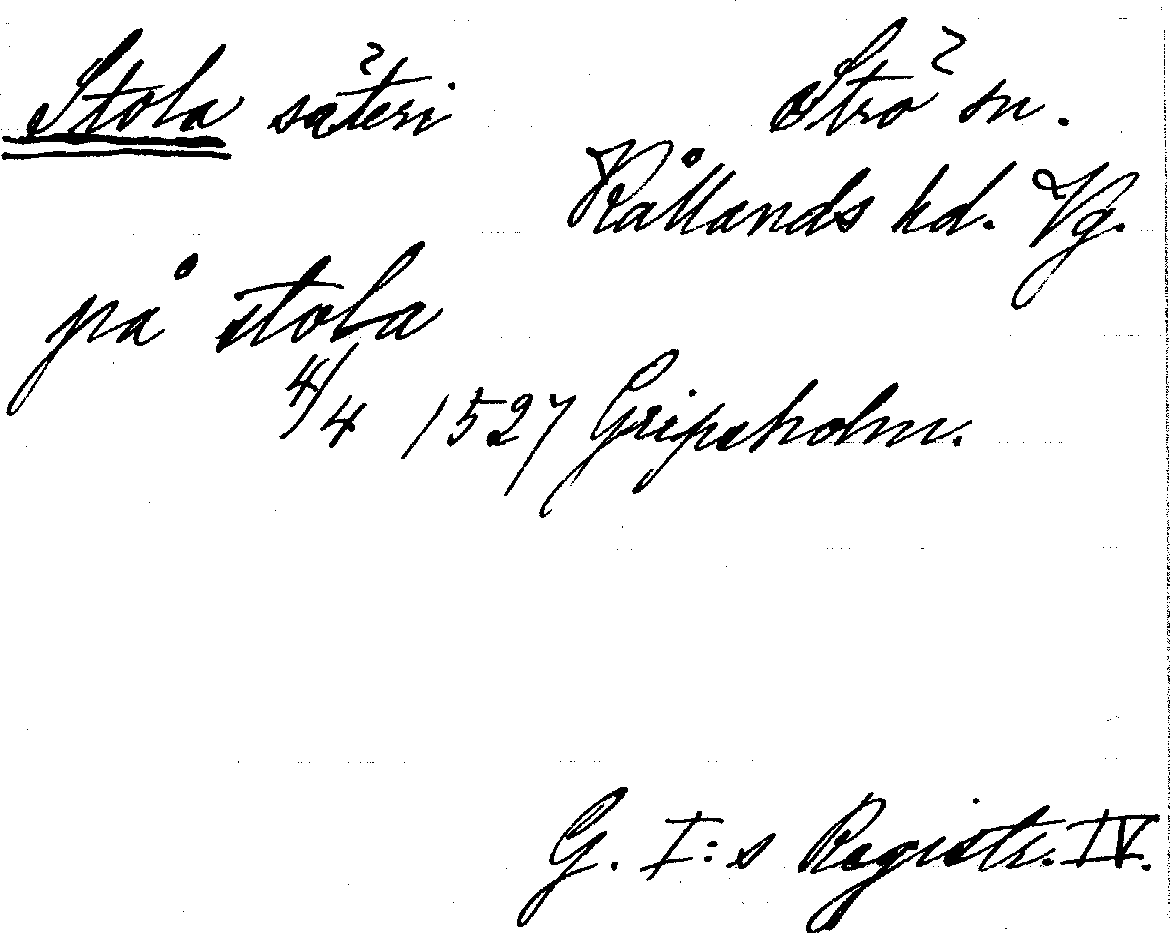 Stola säteri Strö sn.
Kållands hd. Vg.
på stola
4/4 1527 Gripsholm.
G. I:s Registr. IV.